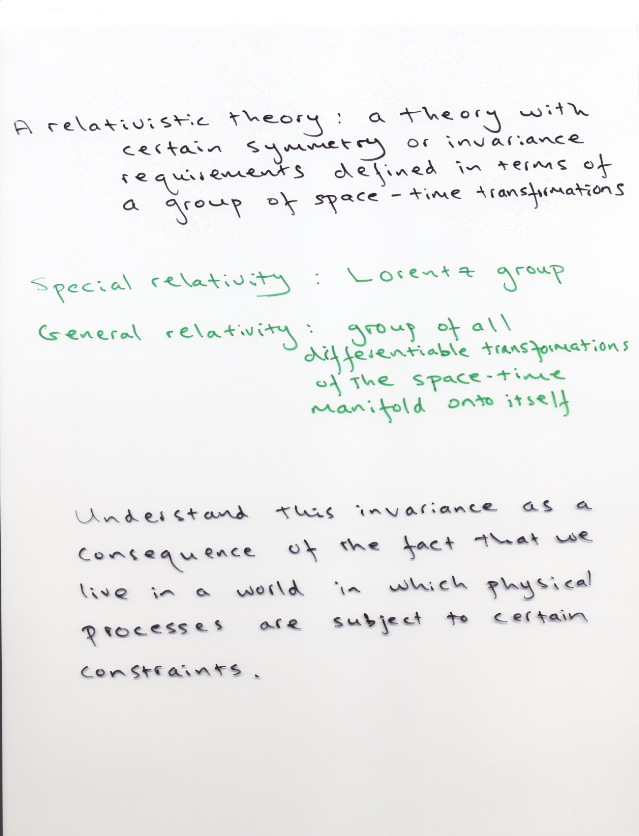 A relativistic theory : a theory with
certain symmetry or invariance
requirements defined in terms of
a group of space-time transformations
Special relativity : Lorentz group
General relativity : group of all
differentiable transformations
of the space-time
manifold onto itself
Understand this invariance as a
consequence of the fact that we
live in a world in which physical
processes are subject to certain
constraints.